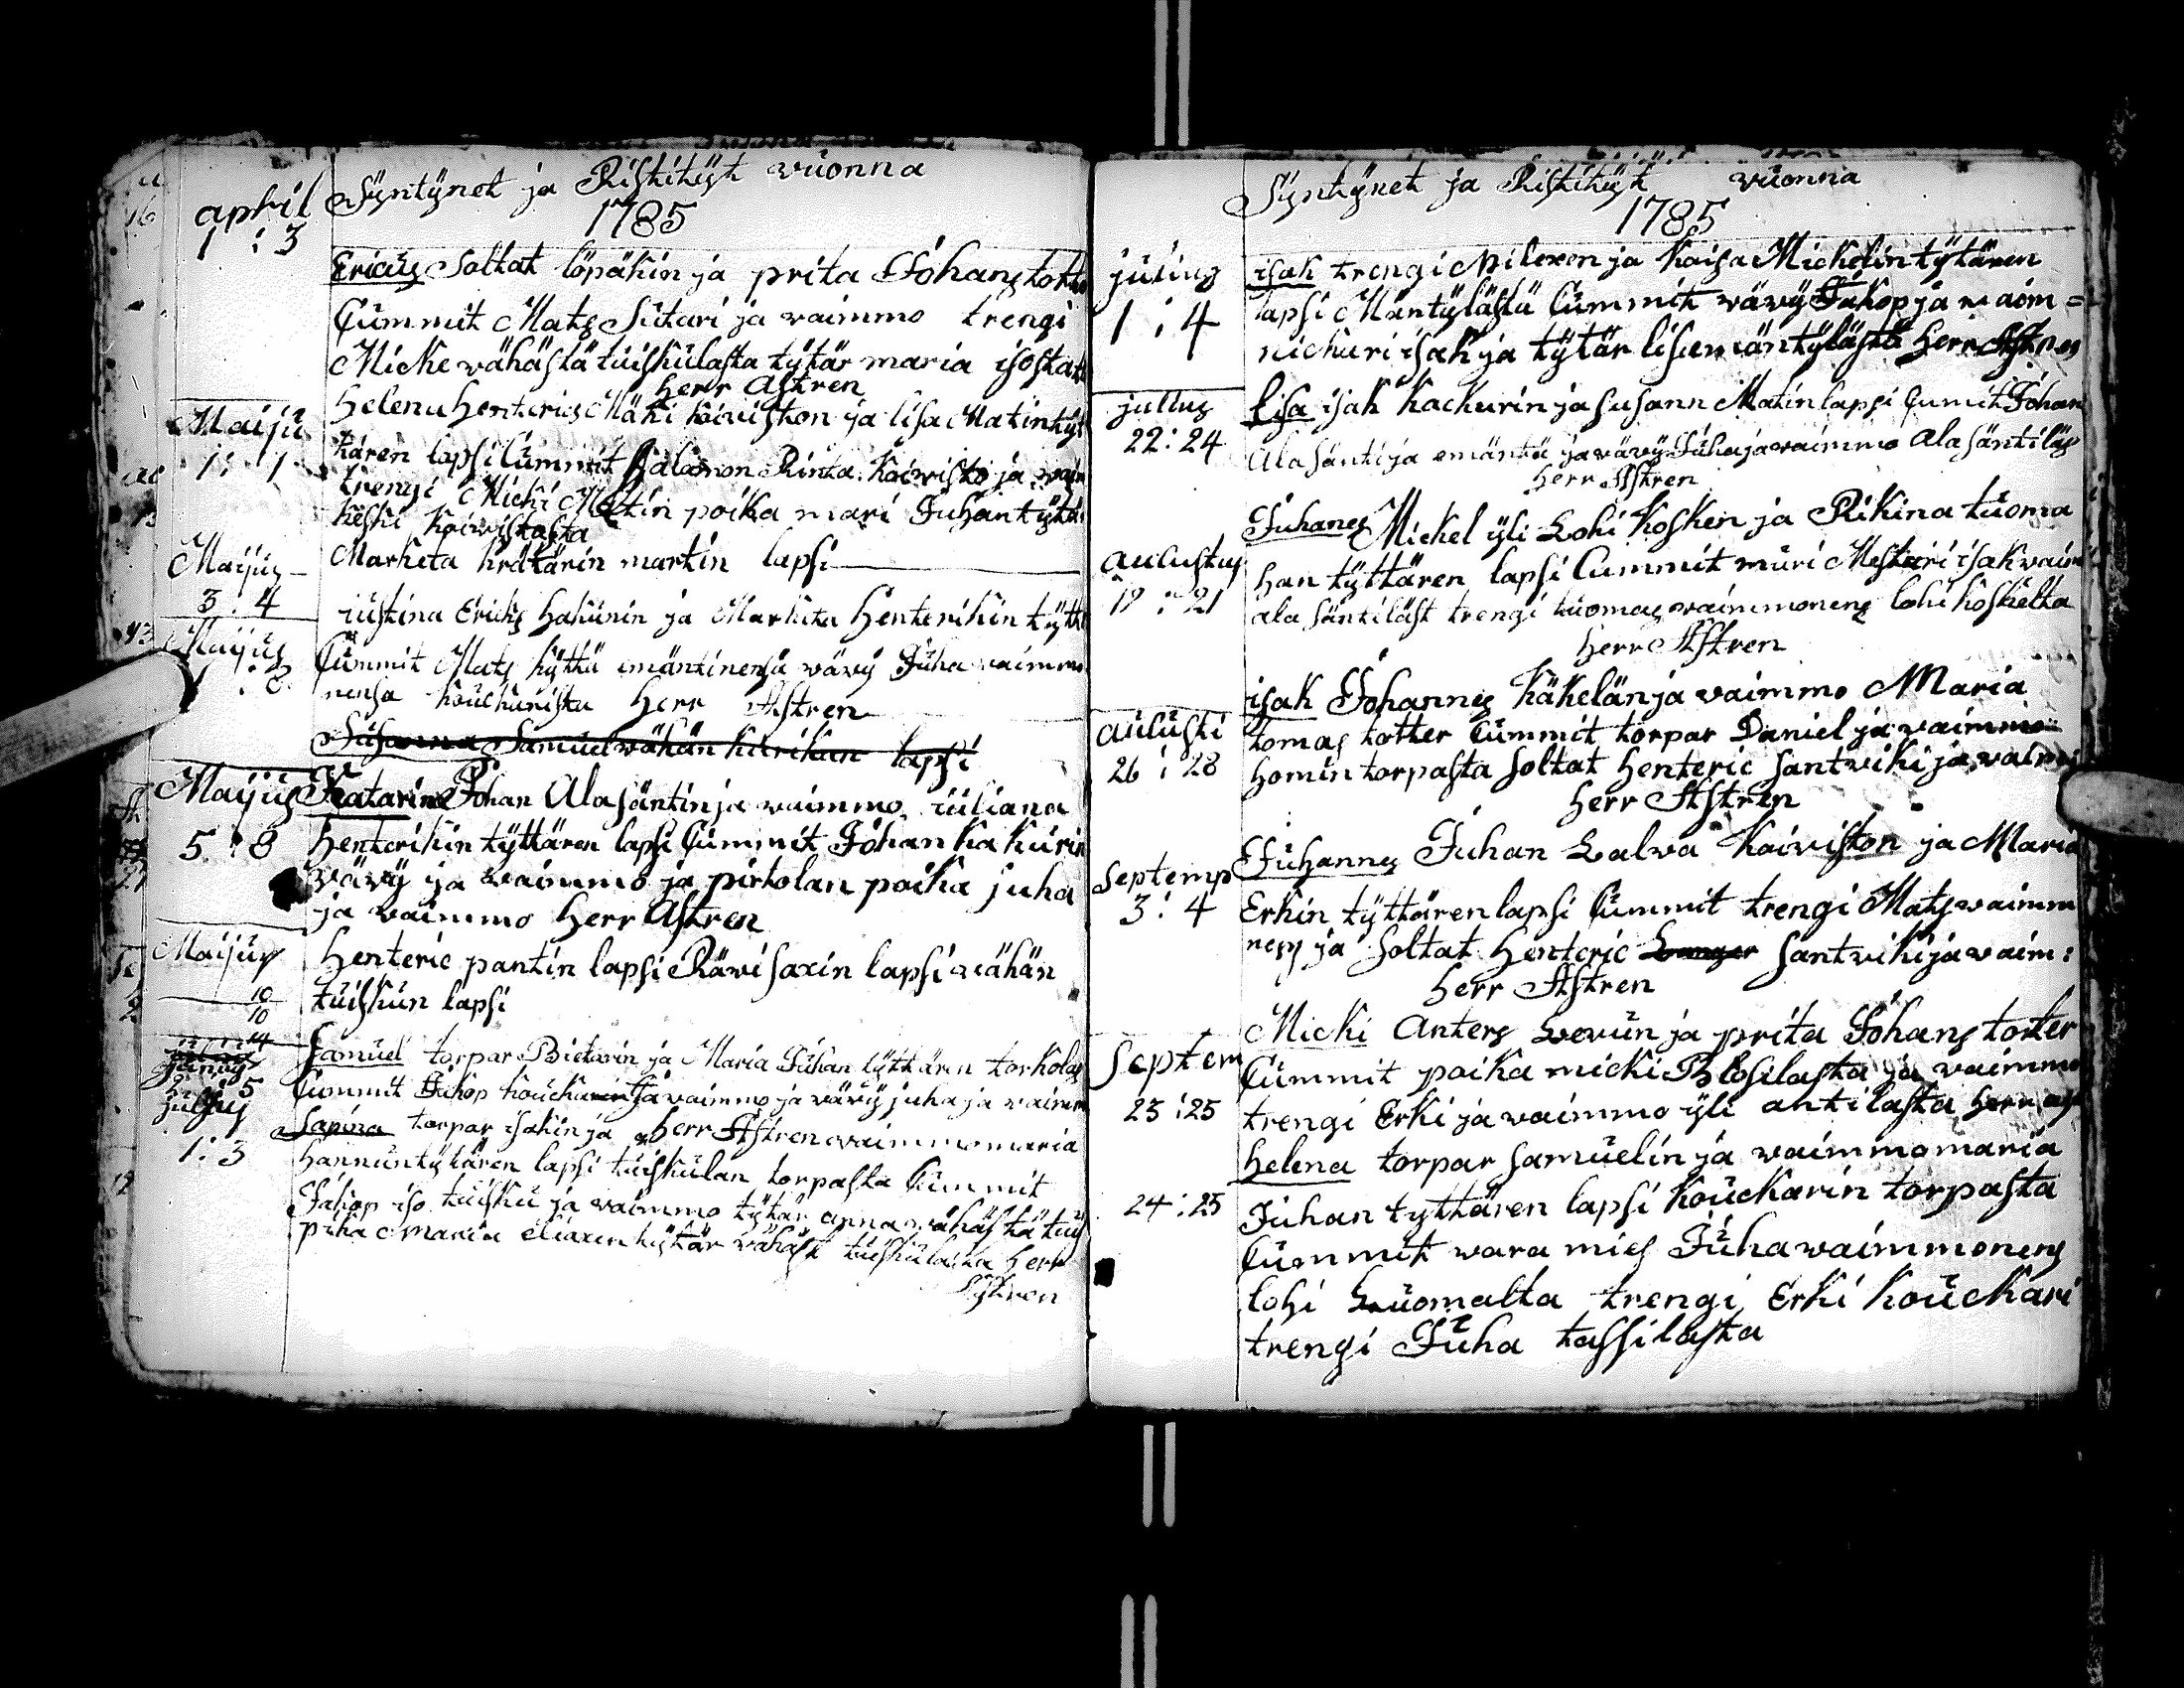 april
1 : 3
Syntynet ja Ristitüst wüonna
1785
Ericüs Soltat löpäkin ja prita Johans totter
Cümmit Mats Sütari ja waimmo trengi
Micke wähästä tüiskülasta tytär maria isosta
herr Astren
Maijü
1 : 1
helena henterics Mäki koiwiston ja lisa Matin tyt
tären lapsi Cümmit Salamon Rinta koiwisto ja waim
trengi Micki Matin poika mari Juhan tytär
keski koiwistosta
Maijüs
3 : 4
Marketa krätärin martin lapsi
Maijüs
1 : 8
iustina Ericks hakünin ja Marketa henterikin tyttä
Cümmit Mats kyttü emäntinensä wäwy Juha waimmo
nensa koückarista herr Astren
Süsanna Samüel wähän karikan lapsi
Maijüs
5 : 8
Katarina Johan Alasäntin ja waimmo iüliana
henterikin tyttären lapsi Cümmit Johan kakürin
wäwy ja waimmo ja pirtolan poika juha
ja waimmo herr Astren
Maijüs
10
10
henteric pantin lapsi Räwisaxin lapsi wähän
tüiskün lapsi
14
5
Samüel torpar Bietarin ja Maria Juhan tyttären torkolas
Cümmit Jakop koückari ja waimmo ja wäwy juha ja waimm
1 : 3
Sapina torpar isakin ja herr Astren waimmo maria
hannün tytären lapsi tüiskülan torpasta Cümmit
Jakop iso tüiskü ja waimmo tytar anna wähästä tüis
pika maria eliaxen tytär wähäst tüiskülasta herr
Astren
Syntynet ja Ristitüst wüonna
1785
jülius
1 : 4
isak trengi Nilexen ja kaisa Mickelin tytären
lapsi Mäntylästü Cümmit wäwy Jakop ja waim=
nickuri isak ja tytär lisa mäntylästä herr Astren
jullus
22 : 24
Lisa isak kackurin ja susann Matin lapsi Cumit Johan
Alasänti ja emäntä ja wäwy Juha ja waimmo Alasäntiläs
herr Astren
aulustus
19 : 21
Juhanes Mickel yli Lohi kosken ja Rikina tüoma
han tyttären lapsi Cummit müri Mesteri isak waim
ala säntiläst trengi tüomas waimmonens lohi koskelta
herr Astren
aülüsti
26 : 28
isak Johannes käkelän ja waimmo Maria
tomas totter Cümmit torpar Daniel ja waimmo
homin torpasta soltat henteric santwiki ja waimm
herr Astren
Septemp
3 : 4
Jühannes Juhan Lalwa koiwiston ja Maria
Erkin tyttären lapsi Cümmit trengi Mats waimm
nens ja soltat henteric Langer santwiki ja waim:
herr Astren
Septem
23 : 25
Micki Anters Lewün ja prita Johans totter
Cümmit poika micki Blosilasta ja waimmo
trengi Erki ja waimmo yli antilasta herr as
24 : 25
helena torpar samüelin ja waimmo maria
Juhan tyttären lapsi koückarin torpasta
Cümmit wara mies Jüha waimmonens
lohi Lüomalta trengi Erki koückari
trengi Jüha tassilasta